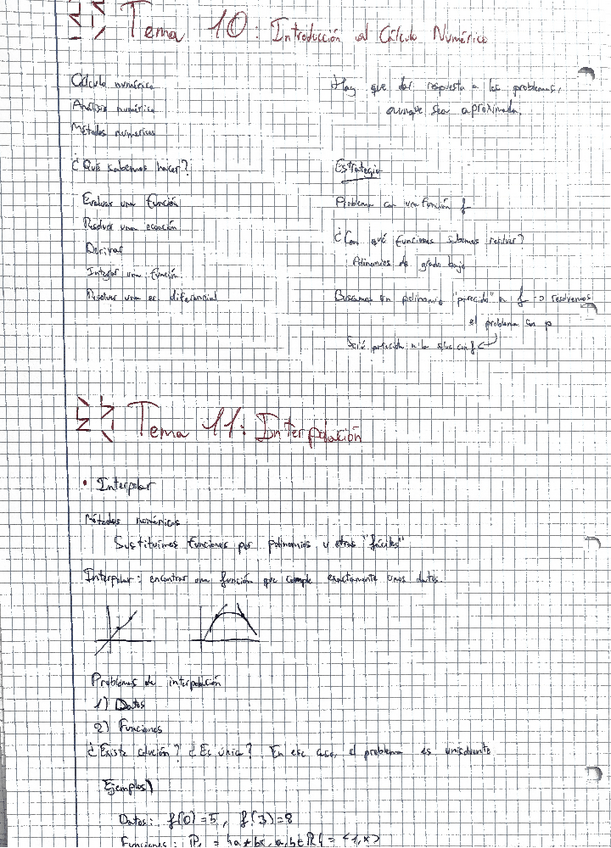 Tema 10: Introducción al Cálculo Numérico
Cálculo numérico
Análisis numérico
Métodos numéricos
¿Qué sabemos hacer?
Evaluar una función
Resolver una ecuación
Derivar
Integrar una función
Resolver una ec diferencial
Hay que dar respuesta a los problemas,
aunque sea aproximada.
Estrategia
Problema con una función f
¿Con qué funciones sabemos resolver?
Polinomios de grado bajo
Buscamos un polinomio "parecido" a f => resolvemos
el problema con p
Será parecida a la
Tema 11: Interpolación
• Interpolar
Métodos numéricos
Sustituimos funciones por polinomios u otras "fáciles"
Interpolar: encontrar una función que cumple exactamente unos datos.
Problemas de interpolación
1) Datos
2) Funciones
¿Existe solución? ¿Es única? En ese caso, el problema es unisolvente
Ejemplos)
Datos: f(0)=5, f(3)=8
Funciones: ℙ₁ = {a+bx, a,b∈ℝ} = <1,x>